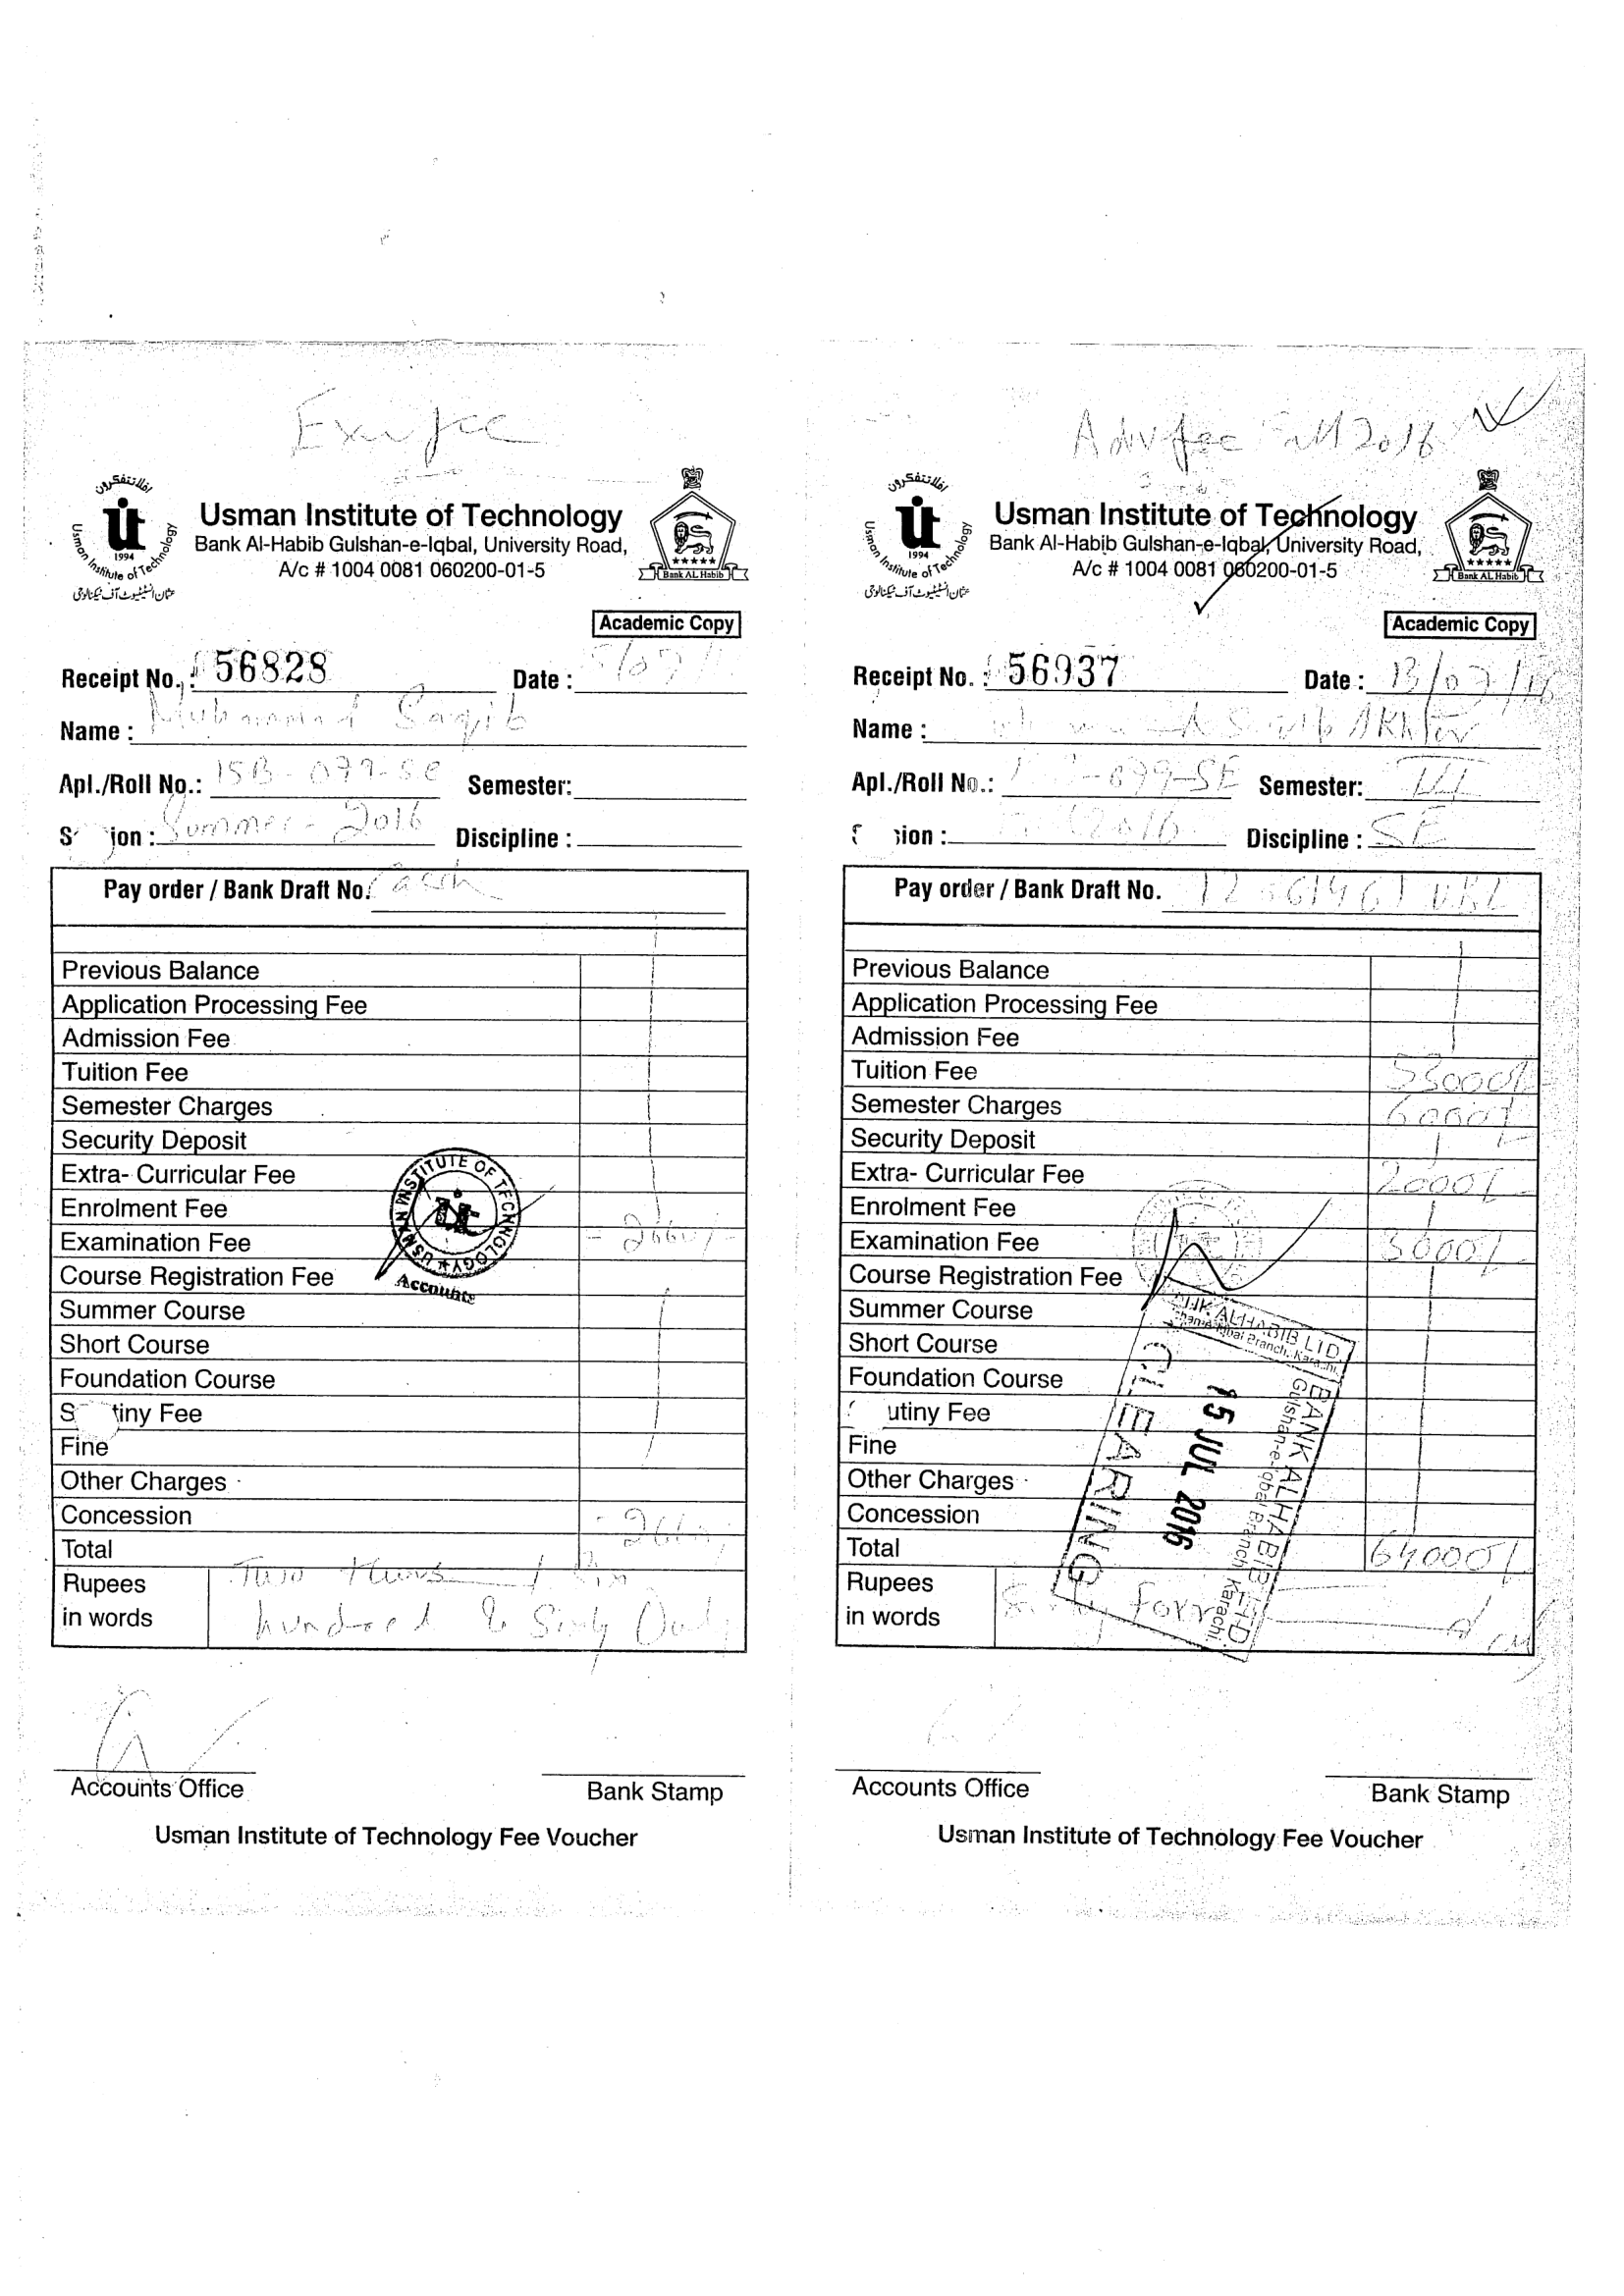 Exm fee
افلا تتفكرون
UIT
1994
Usman Institute of Technology
عثمان انسٹیٹیوٹ آف ٹیکنالوجی
Usman Institute of Technology
Bank Al-Habib Gulshan-e-Iqbal, University Road,
A/c # 1004 0081 060200-01-5
Bank AL Habib
Academic Copy
Receipt No. : 56828 Date :
Name : Muhammad Saqib
Apl./Roll No.: 15B-099-SE Semester:
S ion : Summer-2016 Discipline :
Pay order / Bank Draft No. Cash
Previous Balance
Application Processing Fee
Admission Fee
Tuition Fee
Semester Charges
Security Deposit
Extra- Curricular Fee
Enrolment Fee
Examination Fee
Course Registration Fee
Summer Course
Short Course
Foundation Course
S tiny Fee
Fine
Other Charges
Concession
Total
Rupees Two
in words hundred & Sixty Only
USMAN INSTITUTE OF TECHNOLOGY
Accounts
Accounts Office Bank Stamp
Usman Institute of Technology Fee Voucher
Adv fee 2016
افلا تتفكرون
UIT
1994
Usman Institute of Technology
عثمان انسٹیٹیوٹ آف ٹیکنالوجی
Usman Institute of Technology
Bank Al-Habib Gulshan-e-Iqbal, University Road,
A/c # 1004 0081 060200-01-5
Bank AL Habib
Academic Copy
Receipt No. : 56937 Date : 13/07/16
Name : Akhter
Apl./Roll No.: -099-SE Semester: III
sion : 2016 Discipline : SE
Pay order / Bank Draft No. UBL
Previous Balance
Application Processing Fee
Admission Fee
Tuition Fee 53000/-
Semester Charges 6000/-
Security Deposit
Extra- Curricular Fee 2000/-
Enrolment Fee
Examination Fee 3000/-
Course Registration Fee
Summer Course
Short Course
Foundation Course
utiny Fee
Fine
Other Charges
Concession
Total 64000/-
Rupees
in words
BANK ALHABIB LTD.
CLEARING
15 JUL 2016
BANK ALHABIB LTD
Gulshan-e-Iqbal Branch Karachi.
Accounts Office Bank Stamp
Usman Institute of Technology Fee Voucher